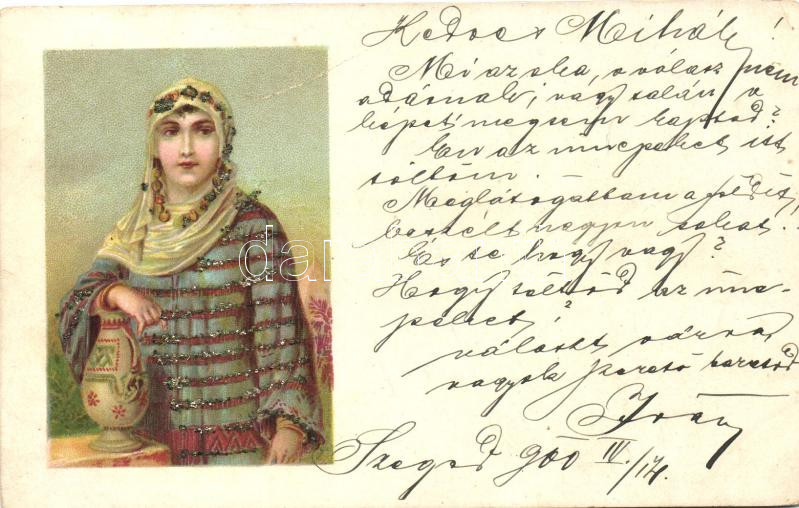 Kedves Mihály!
Mi az oka, o válasz nem
adásnak, vagy talán a
képet megsem kaptad?
Én az ünnepeket itt
töltöm.
Meglátogattam a
beszélt nagyon sokat.
És te hogy vagy?
Hogy töltöd az ün-
peket?
választ várva
vagyok szerető barátod
Iván
Szeged 900 IV./14.